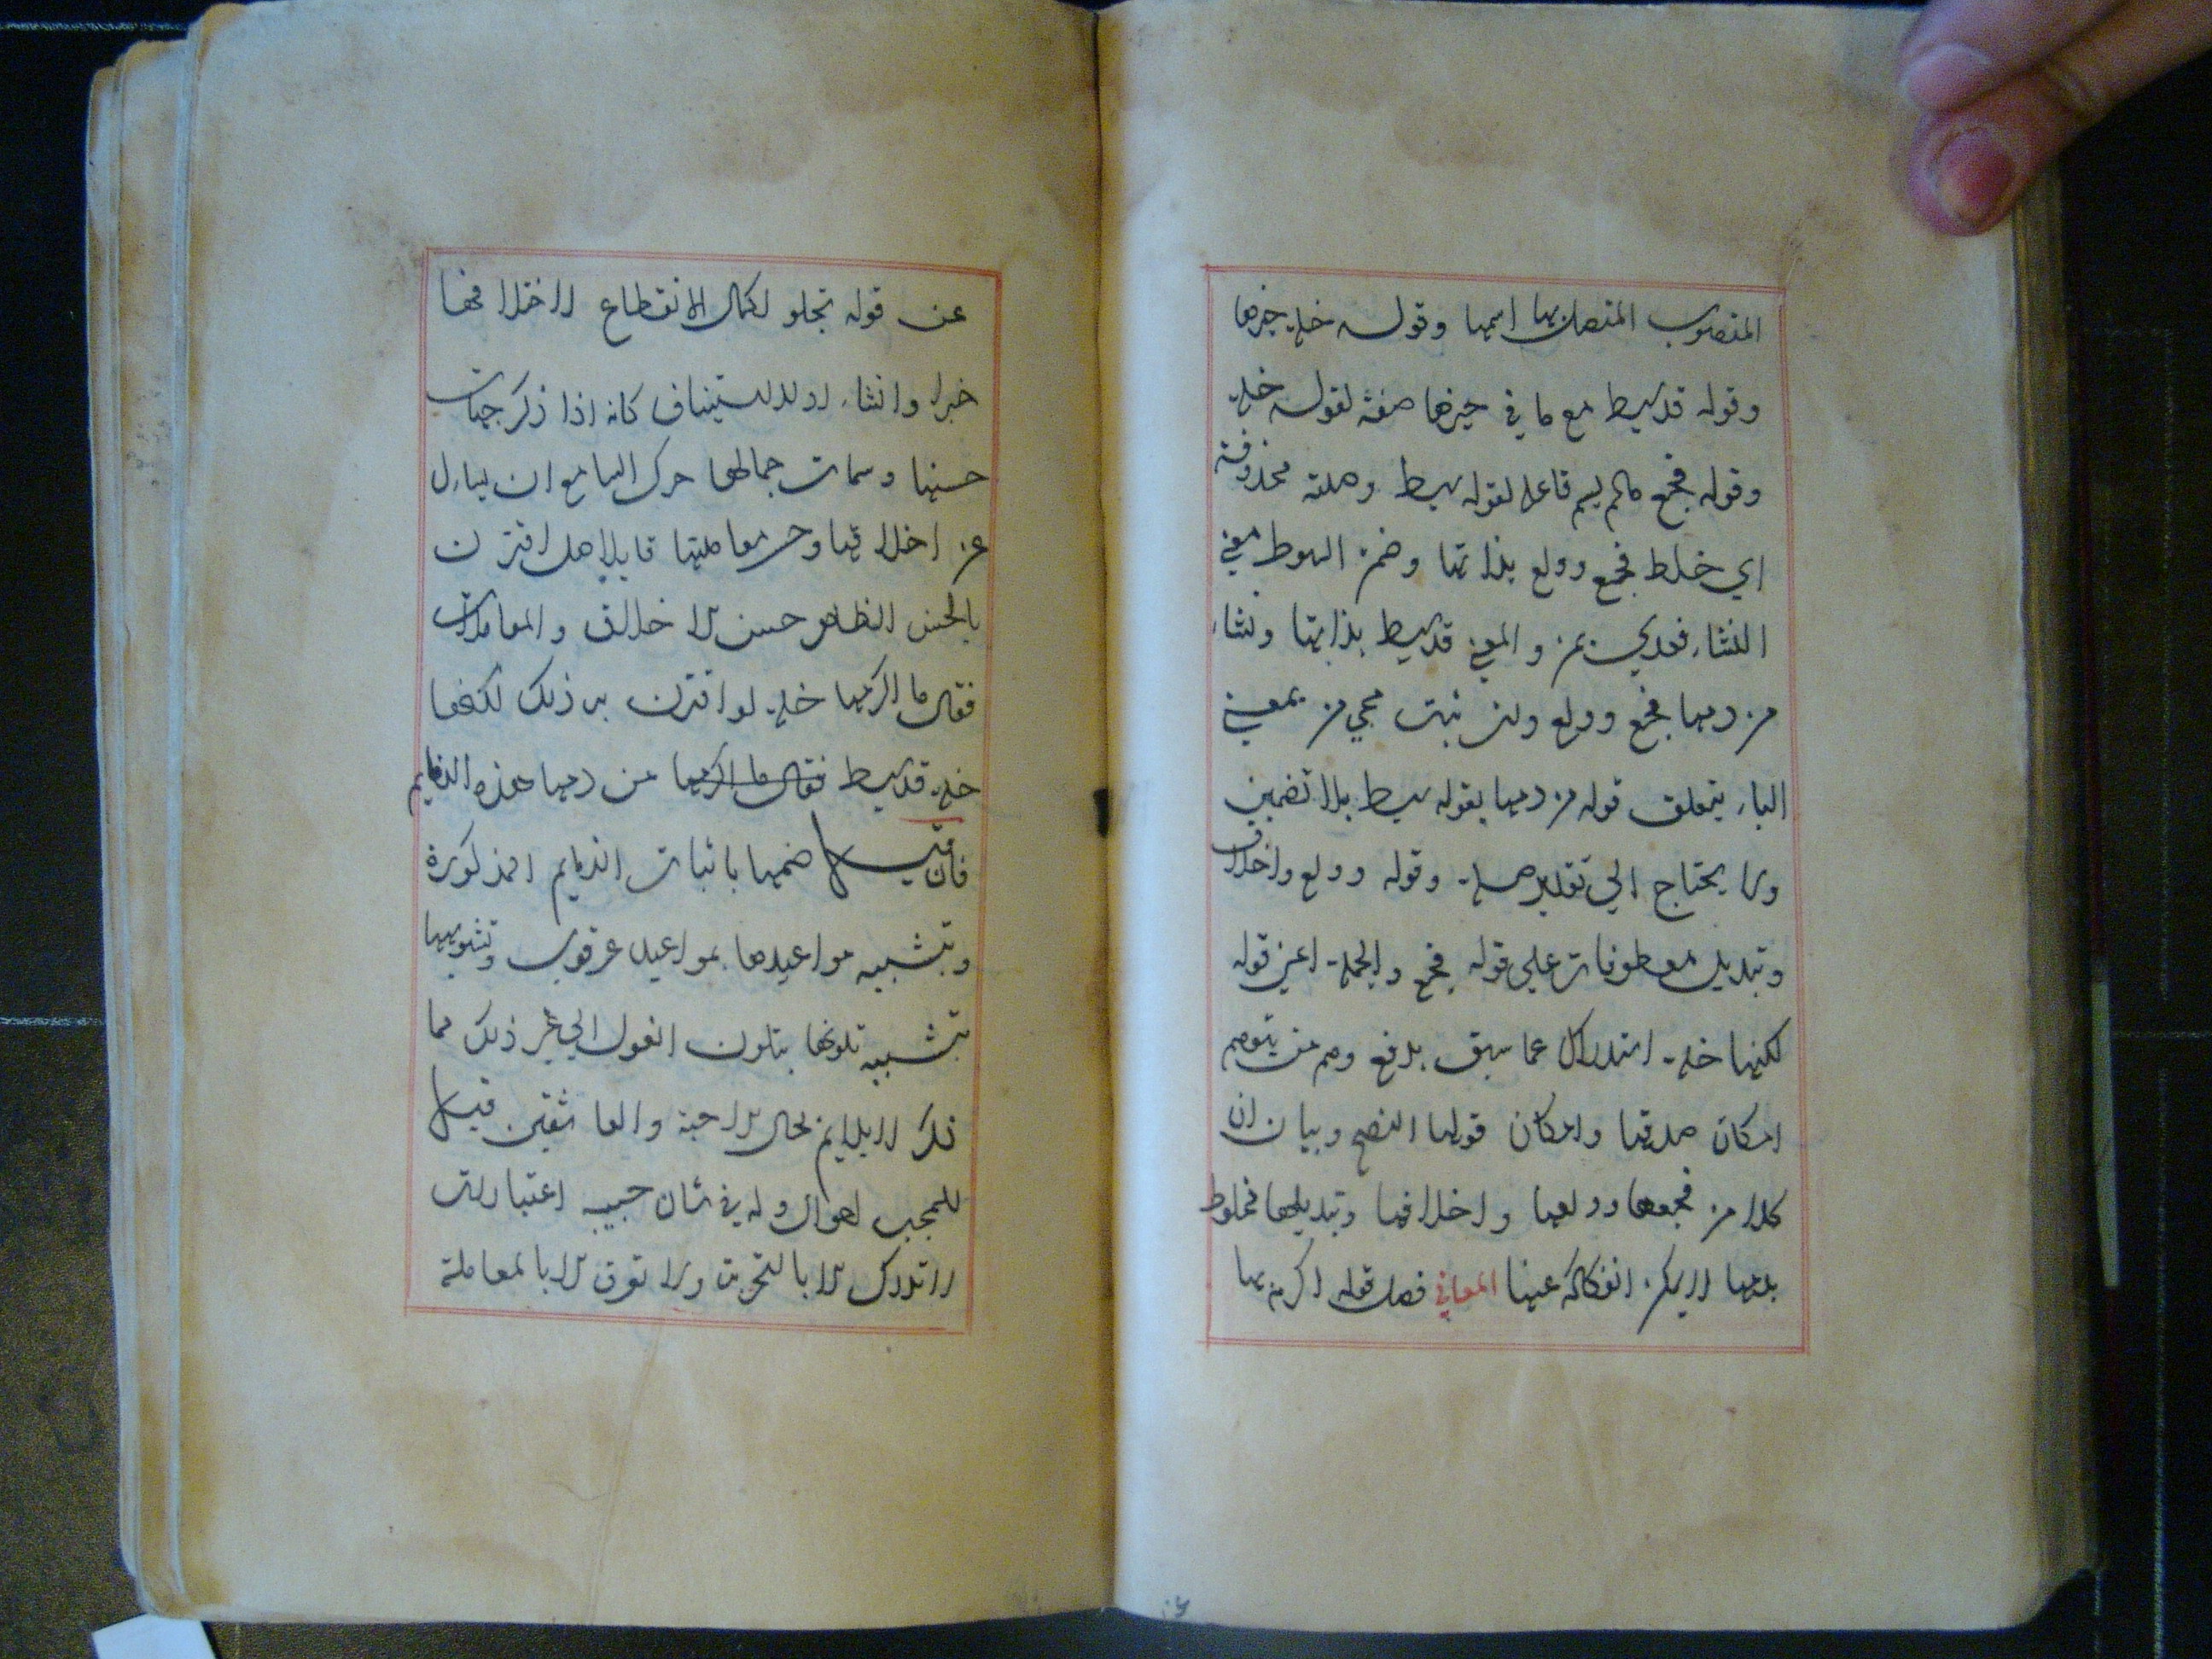 المنصوب المتصل بها اسمها وقوله خلة خبرها
وقوله قد سيط مع ما في حيزها صفة لقوله خلة
وقوله فجع مالم يسم فاعله لقوله سيط وصلته محذوفة
اي خلط فجع وولع بذاتها وضمن السوط معني
النشاء فعدي بمن والمعني قد سيط بذاتها ونشاء
من دمها فجع وولع ولئن ثبت مجي من بمعني
الباء يتعلق قوله من دمها بقوله سيط بلا تضمين
ولا يحتاج الي تقدير صلة وقوله وولع واخلاف
وتبديل معطوفات علي قوله فجع والجملة اعني قوله
لكنها خلة استدراك عما سبق بدفع وهم من يتوهم
امكان صدقها وامكان قولها النصح وبيان ان
كلا من فجعها وولعها واخلافها وتبديلها مخلوط
بدمها لا يمكن انفكاكه عنها المعاني فصل قوله اكرم بها
عن قوله تجلو لكمال الانقطاع لاختلافهما
خبرا وانشاء او للاستيناف كانه اذا ذكر جهات
حسنها وسمات جمالها حرك السامع ان يساءل
عن اخلاقها وحسن معاملتها قايلا هل اقترن
بالحسن الظاهر حسن الاخلاق والمعاملات
فقال ما اكرمها خلة لو اقترن بها ذلك لكنها
خلة قد سيط فقال ما اكرمها من دمها هذه الذمايم
فان قيل ضمها باثبات الذمايم المذكورة
وتشبيه مواعيدها بمواعيد عرقوب وتشويهها
بتشبيه تلونها بتلون الغول الي غير ذلك مما
ذكر لا يلايم بحال الاحبة والعاشقين قيل
للمحب احوال وله في شان حبيبه اعتبارات
لا تدرك الا بالتجربة ولا تعرف الا بالمعاملة